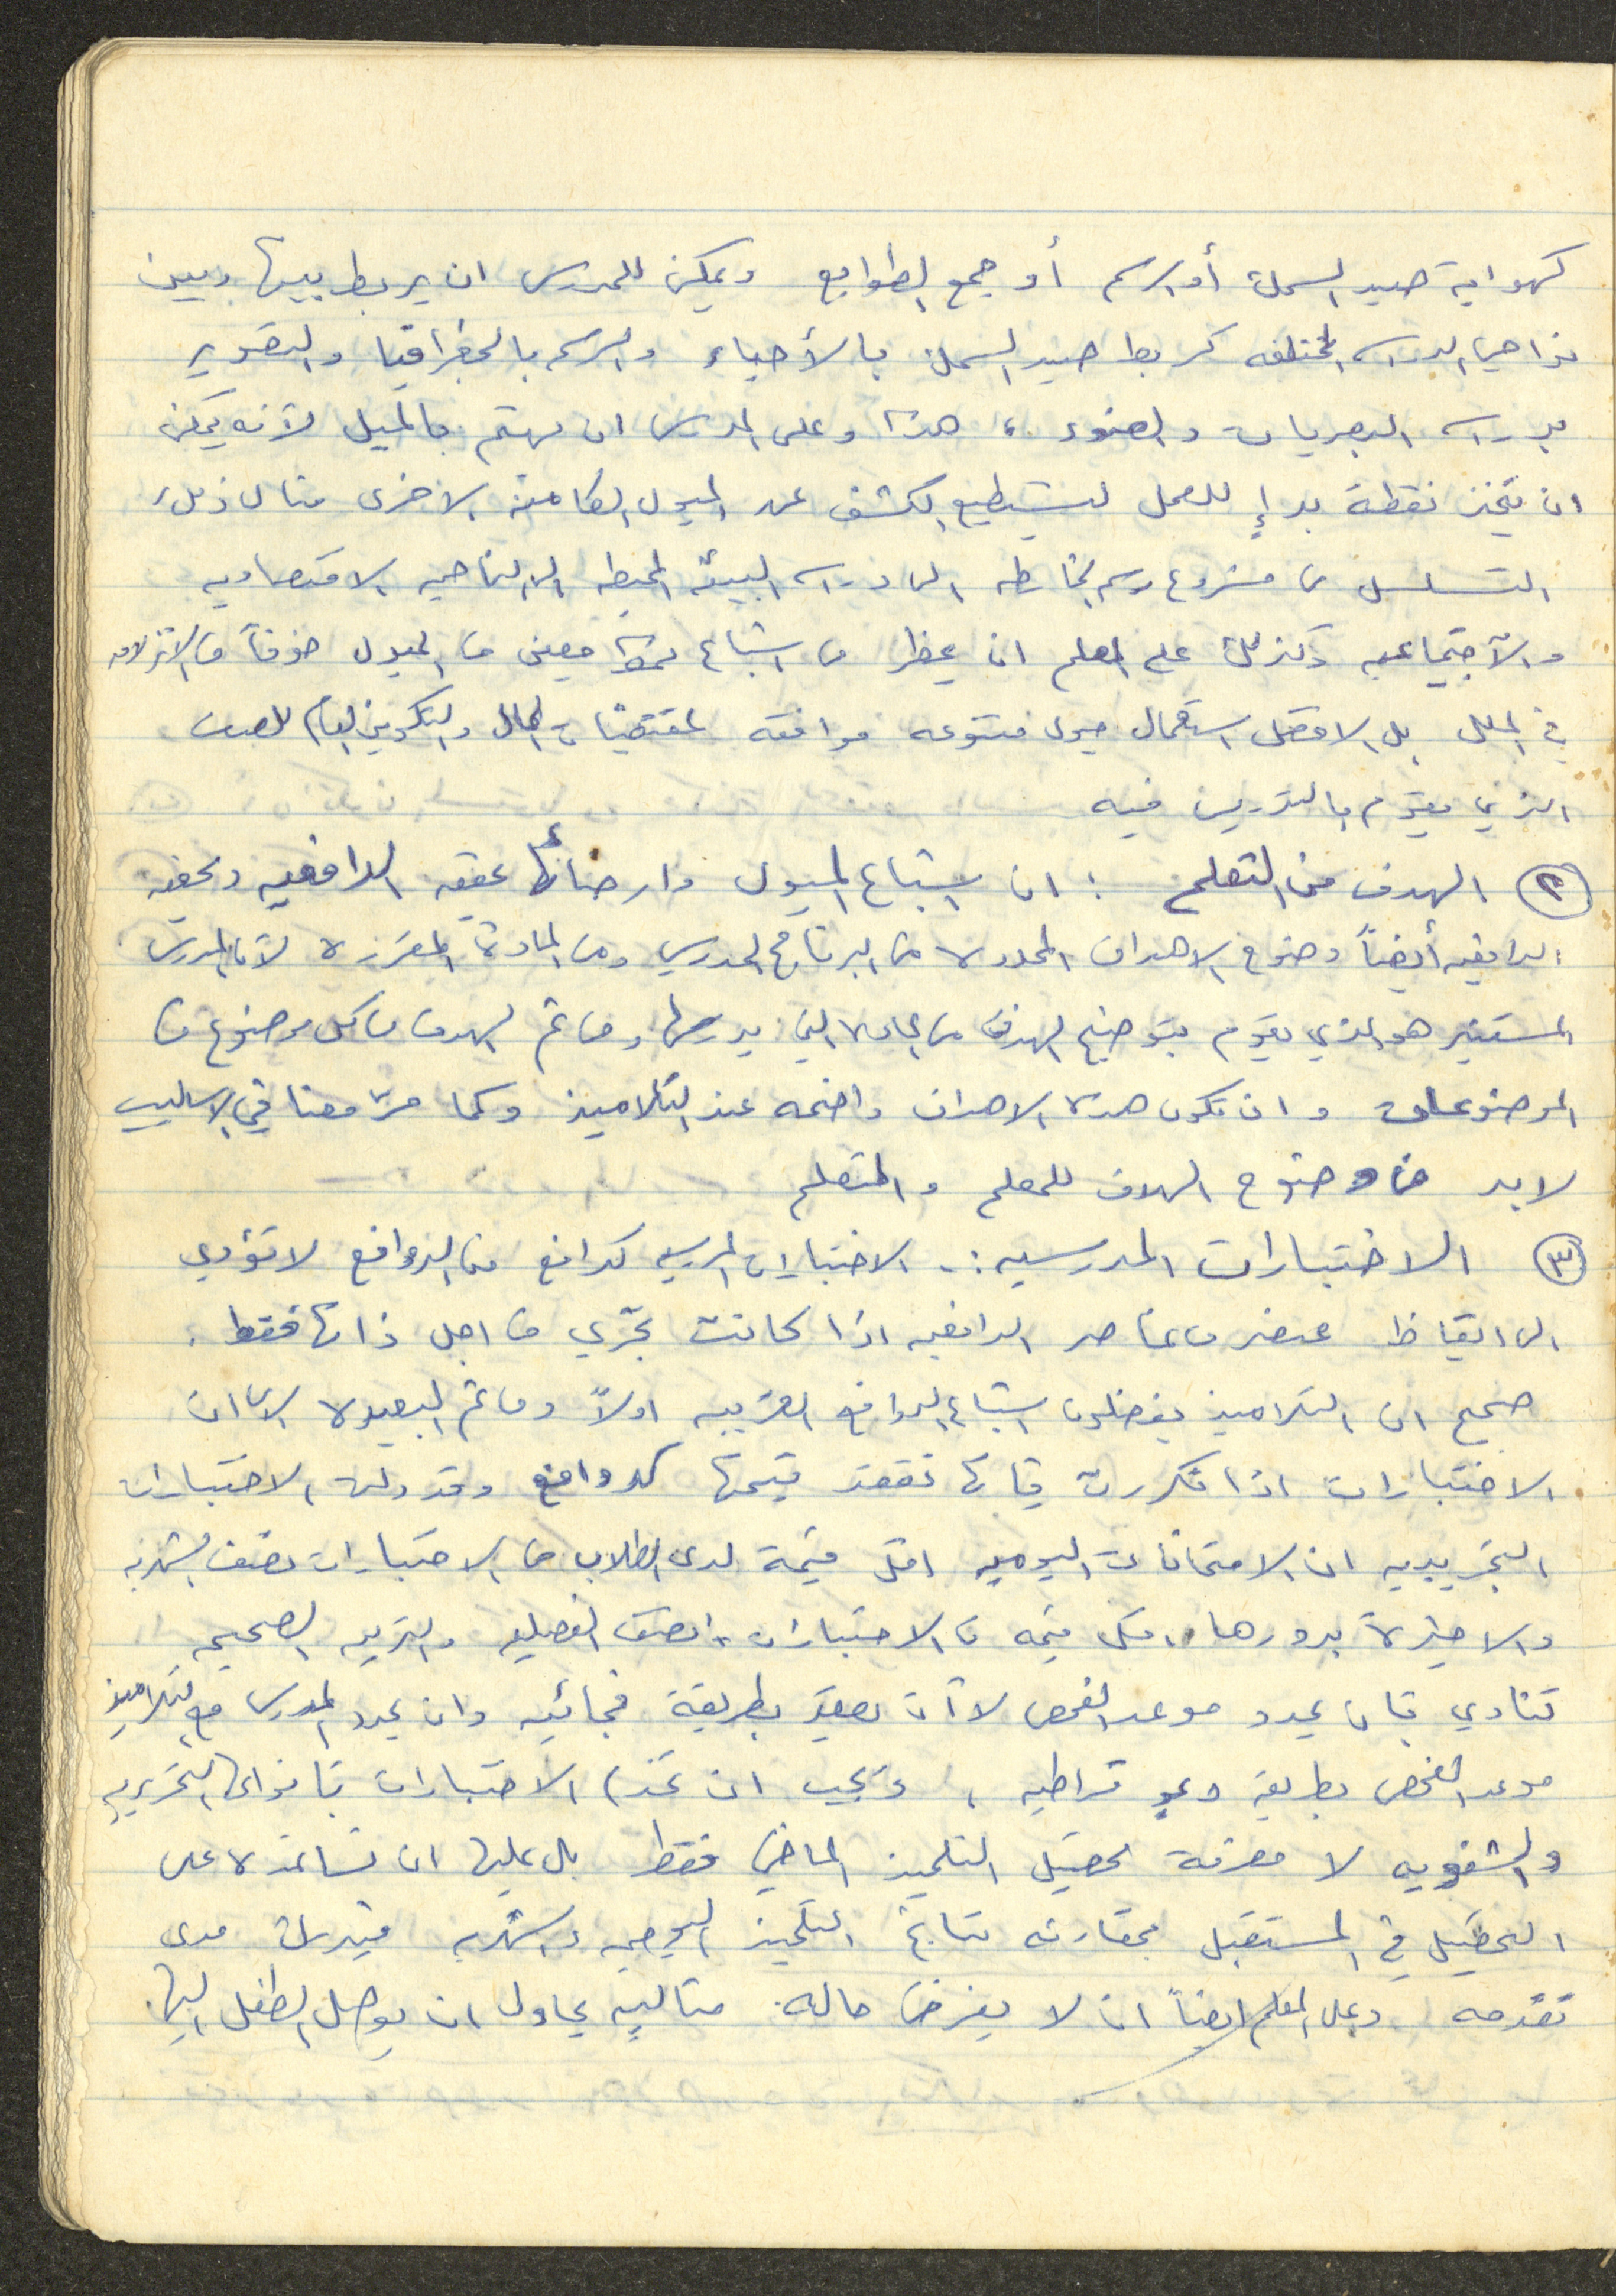 كهواية صيد السمك أو الرسم أو جمع الطوابع ويمكن للمدرس ان يربط بينها وبين
نواحي الدراسه المختلفه كربط صيد السمك بالأحياء والرسم بالجغرافيا والتصوير
بدراسه البصريات والضوء ، هذا وعلى المدرس ان يهتم بالميل لأنه يمكن
ان يتخذ نقطة بدإ للعمل ليستطيع الكشف عن الميول الكامنه الاخرى مثال ذلك
التسلسل من مشروع رسم الخارطه الى دراسه البيئه المحيطه الى الناحيه الاقتصاديه
والاجتماعيه وكذلك على المعلم ان يحظر من اشباع نمط معين من الميول خوفاً من الانزلاق
في الملل بل الافضل استعمال ميول متنوعه موافقه لمقتضيات الحال والتكوين العام للصف
الذي يقوم بالتدريس فيه
٢ الهدف من التعلم : ان اشباع الميول وارضائها يحقق الدافعيه ويحقق
الدافعيه أيضاً وضوح الاهداف المحدده من البرنامج المدرسي ومن المادة المقرره لأن المدرس
المستنير هو الذي يقوم بتوضيح الهدف من الماده التي يدرسها ومن ثم الهدف من كل موضوع من
الموضوعات وان تكون هذه الاهداف واضحه عند التلاميذ وكما مرّ معنا في الاساليب
لابد من وضوح الهدف للمعلم والمتعلم
٣ الاختبارات المدرسيه :- الاختبارات المدرسيه كدافع من الدوافع لا تؤدي
الى ايقاظ عنصر من عناصر الدافعيه اذا كانت تجري من اجل ذاتها فقط .
صحيح ان التلاميذ يفضلون اشباع الدوافع القريبه اولاً ومن ثم البعيده الا ان
الاختبارات اذا تكررت فإنها تفقد قيمتها كدوافع وقد دلت الاختبارات
التجريبيه ان الامتحانات اليوميه اقل قيمة لدى الطلاب من الاختبارات نصف الشهريه
والاخيرة بدورها اقل قيمه من الاختبارات نصف الفصليه والتربيه الصحيحه
تنادي بأن يحدد موعد الفحص لا أن يعقد بطريقة فجائيه وان يحدد المدرس مع التلاميذ
موعد الفحص بطريقه ديموقراطيه ، ويجب ان تهدف الاختبارات بأنواعها التحريريه
والشفويه لا معرفة تحصيل التلميذ الماضي فقط بل عليها ان تساعده على
التحصيل في المستقبل بمقارنه نتائج التلميذ اليوميه والشهريه فيدرك مدى
تقدمه وعلى المعلم ايضاً ان لا يفرض حاله مثاليه يحاول ان يوصل الطفل اليها.